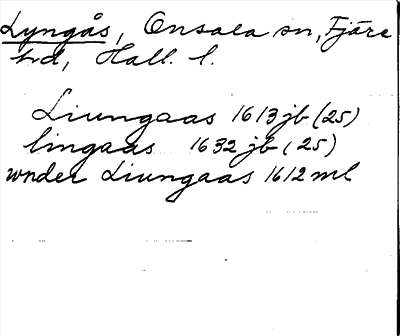 Lyngås, Onsala sn, Fjäre
hd, Hall. l.
Liungaas 1613 jb (25)
lingaas 1632 jb (25)
wnder Liungaas 1612 ml